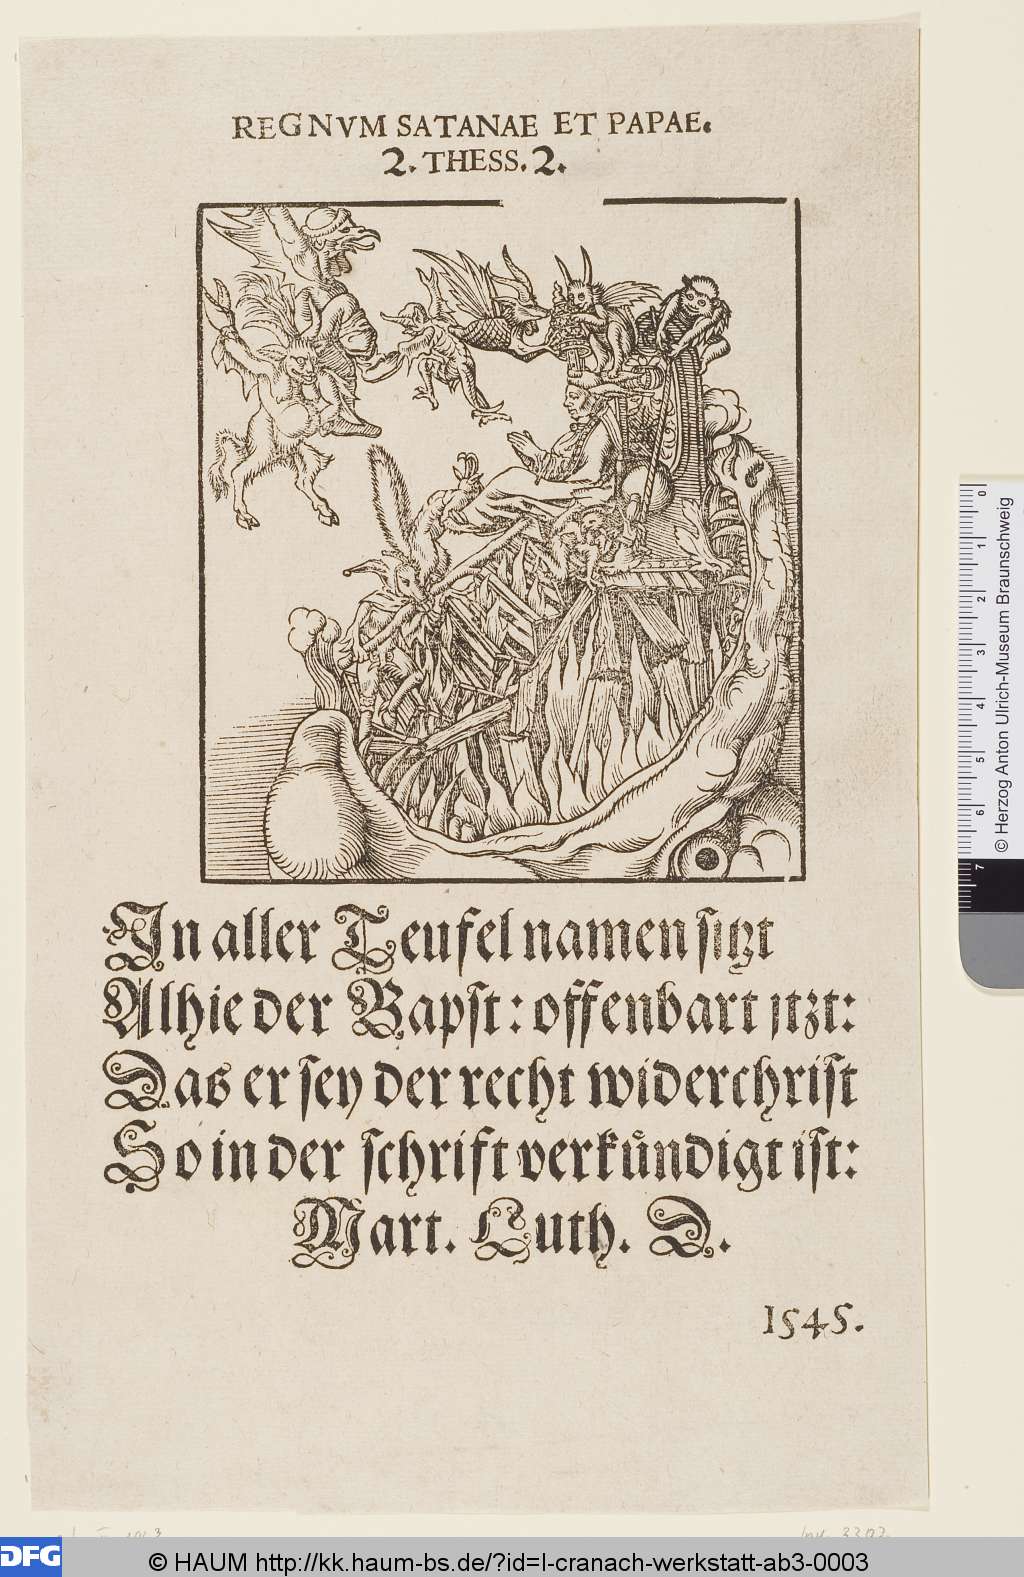 REGNVM SATANAE ET PAPAE.
2. THESS. 2.
In aller Teufel namen ſitzt
Alhie der Bapſt: offenbart jtzt:
Das er ſey der recht widerchriſt
So in der ſchrifft verkuͤndigt iſt:
Mart. Luth. D.
1545.
0 1 2 3 4 5 6 7
© Herzog Anton Ulrich-Museum Braunschweig
DFG
© HAUM http://kk.haum-bs.de/?id=l-cranach-werkstatt-ab3-0003